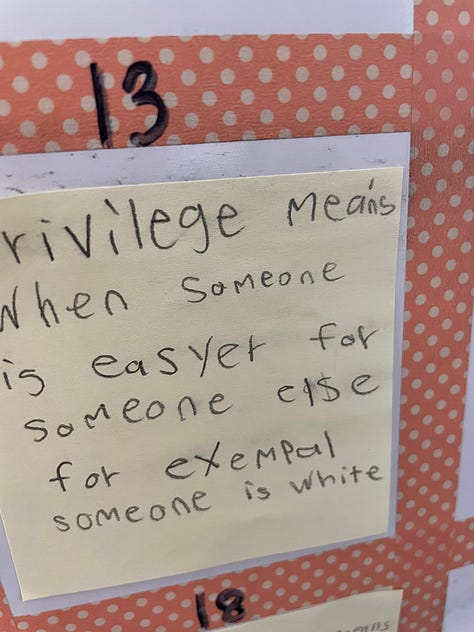 13
rivilege means
When someone
is easyer for
someone else
for exempal
someone is white
18
means